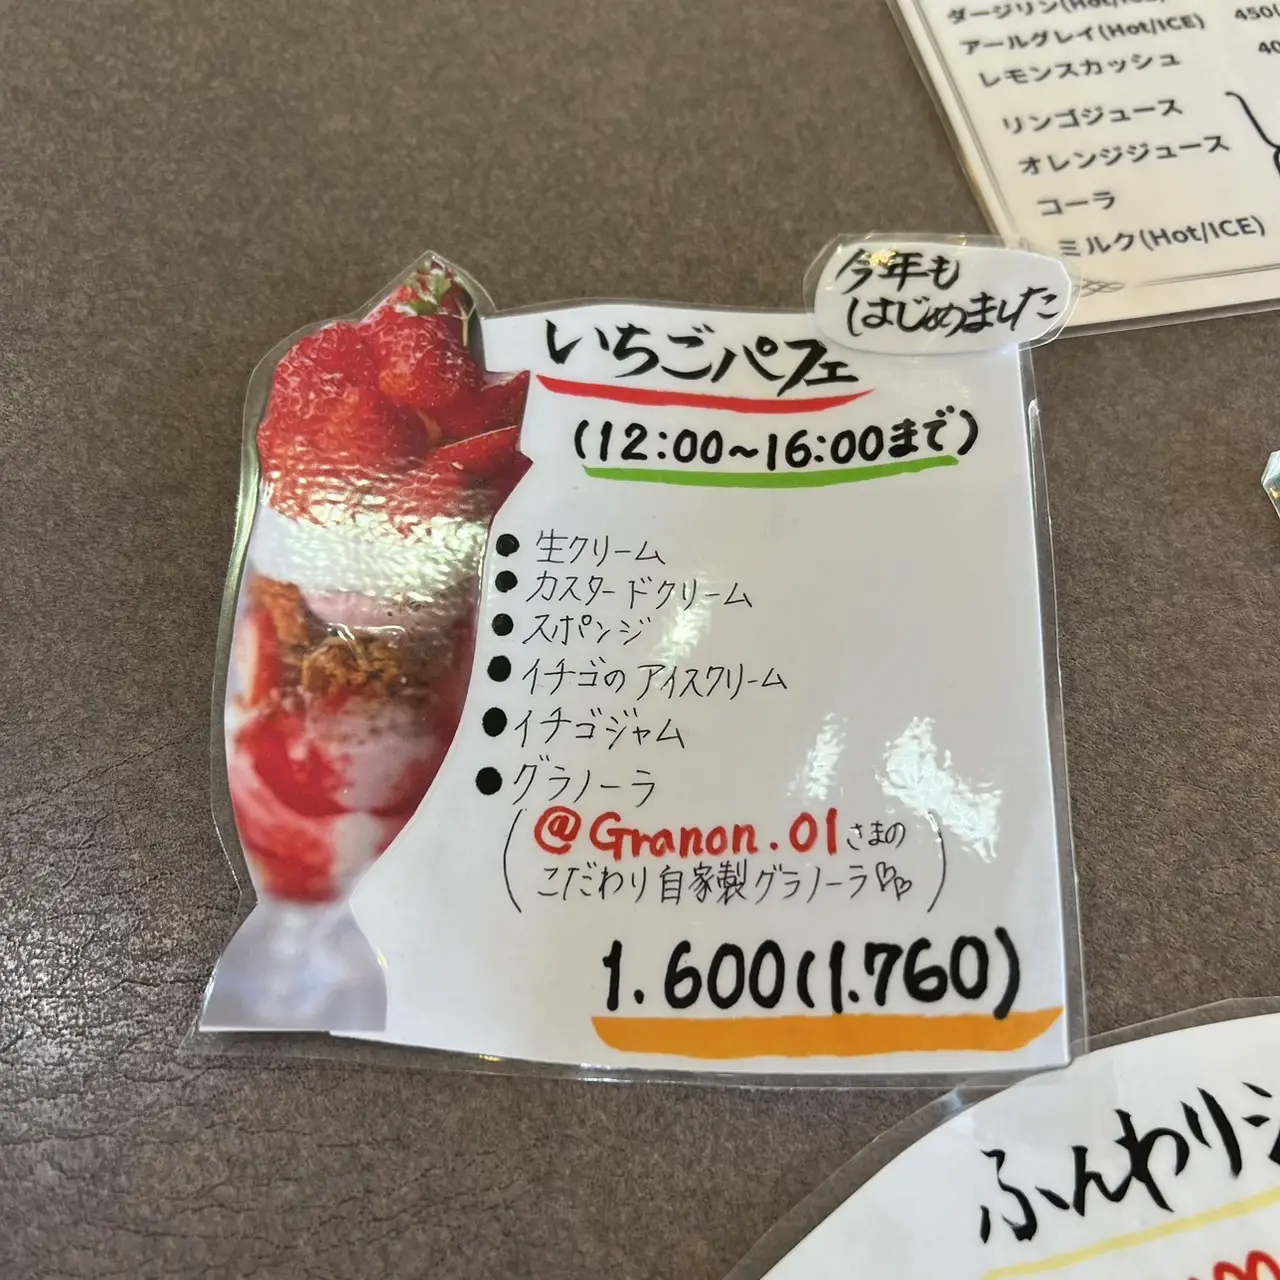 ダージリン(Hot/ICE)
アールグレイ(Hot/ICE)
450(
レモンスカッシュ
40
リンゴジュース
オレンジジュース
コーラ
ミルク(Hot/ICE)
今年も
はじめました
いちごパフェ
(12:00~16:00まで)
● 生クリーム
● カスタードクリーム
● スポンジ
● イチゴのアイスクリーム
● イチゴジャム
● グラノーラ
(@Granon.01さまの
こだわり自家製グラノーラ♡♡)
1.600(1.760)
ふんわりシ